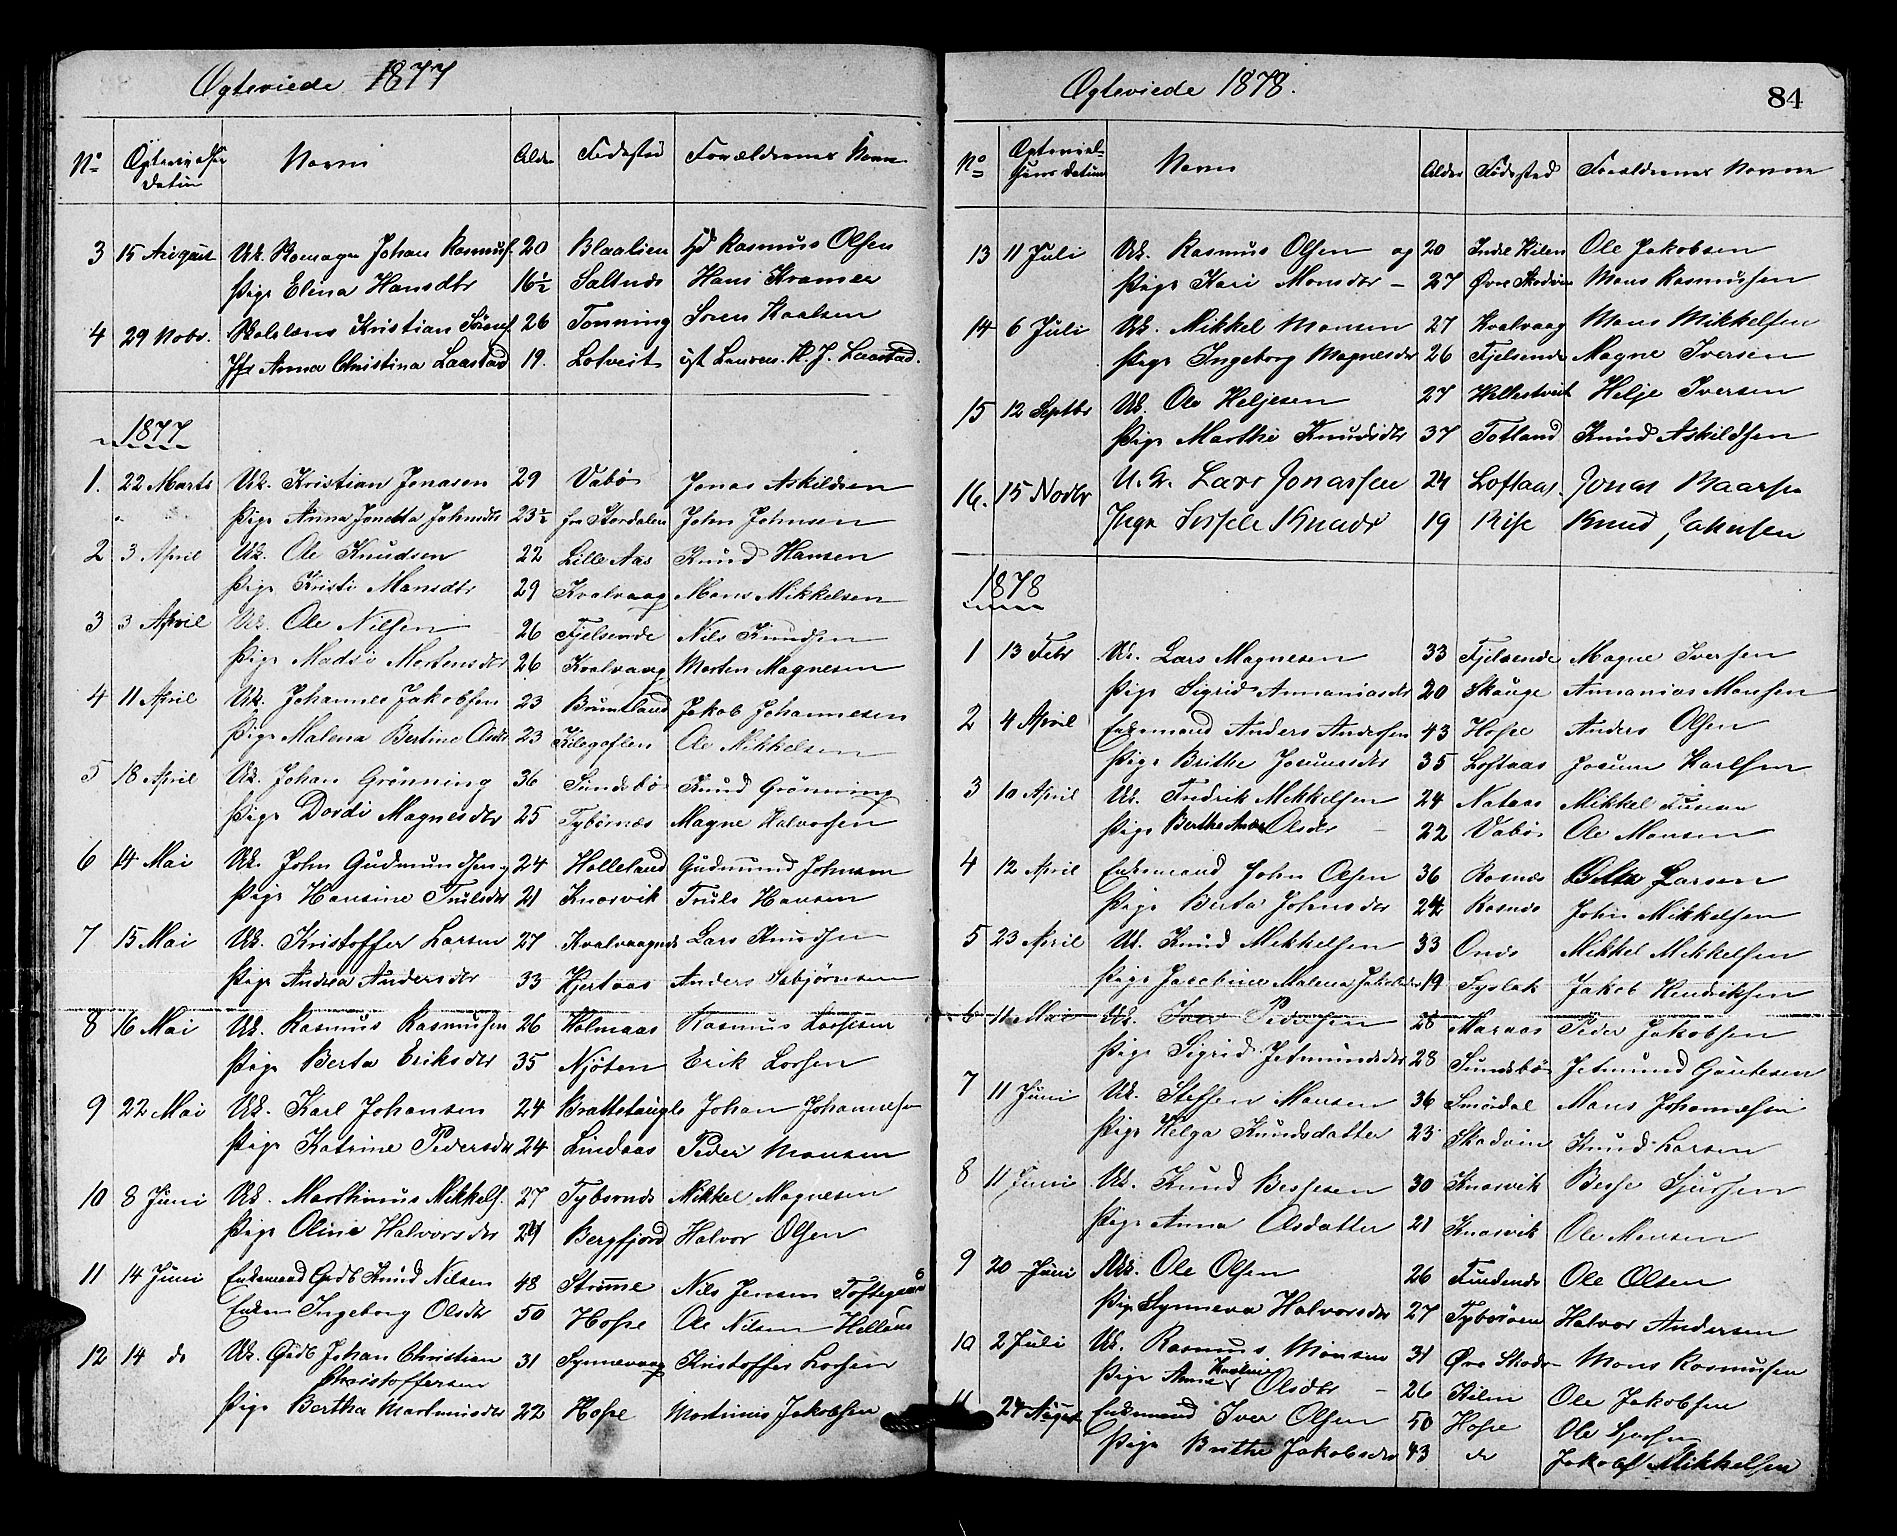 Ægteviede 1877
No Ægtevielses datum Navn Alder Fødested Forældrenes Navn
3 15 August Uk. Johan Rasmuss. 20 Blaalien Rasmus Olsen
Pige Elena Hansdtr 16½ Saltnes Hans Kramer
4 29 Novbr. Kristian 26 Tonning Soren Kaalsen
Jfr Anna Christina Laastad 19. Lotveit Lauren. H. J. Laastad.
1877
1. 22 Marts Uk. Kristian Jonasen 29 Vabø Jonas Askildsen
" " Pige Anna Jonetta Johnsdtr 23½ fra Stordalen John Johnsen
2 3 April Uk. Ole Knudsen 22 Lille Aas Knud Hansen
Pige Kristi Monsdtr 29 Kvalvaag Mons Mikkelsen
3 3 April Uk. Ole Nilsen 26 Fjelsende Nils Knudsen
Pige Madsi Mortensdtr 26 Kvalvaag Morten Magnesen
4 11 April Uk. Johannes Jakobsen 23 Bruntland Jakob Johannesen
Pige Malena Bertine Olsdtr 23 Ole Mikkelsen
5 18 April Uk. Johan Grønning 36 Sundsbø Knud Grønning
Pige Dordi Magnesdtr 25 Tybørnæs Magne Halvorsen
6 14 Mai Uk. John Gudmundsen 24 Holleland Gudmund Johnsen
Pige Hansine Trulsdtr 21 Knarvik Truls Hansen
7 15 Mai Uk. Kristoffer Larsen 27 Kvalvaagnes Lars Knudsen
Pige Andrea Andersdtr 33 Hjertaas Anders Asbjørnsen
8 16 Mai Uk. Rasmus Rasmussen 26 Holmaas Rasmus
Pige Berta Eriksdtr 35 Njøten Erik Larsen
9 22 Mai Uk. Karl Johansen 24 Brattetaugle Johan Johannesen
Pige Katrine Pedersdtr 24 Lindaas Peder Monsen
10 8 Juni Uk. Marthinus Mikkels. 27 Tybornes Mikkel Magnesen
Pige Oline Halvorsdtr 24 Bergfjord Halvor Olsen
11 14 Juni Enkemand Gdb Knud Nilsen 48 Strøme Nils Jensen Toftegaard
Enken Ingeborg Olsdtr 50 Hope Ole Nilsen Helland
12 14 do Uk. Gdb Johan Christian 31 Synnevaag Kristoffer Larsen
Christoffersen
Pige Bertha Martinusdtr 22 Hope Martinus Jakobsen
Ægteviede 1878.
84
No Ægteviel- sens datum Navn Alder Fødested Forældrenes Navne
13 11 Juli Uk. Rasmus Olsen og 20 Indre Kilen Ole Jakobsen
Pige Kari Monsdtr - 27 Øvre Skodvin Mons Rasmussen
14 6 Juli Uk. Mikkel Monsen 27 Kvalvaag Mons Mikkelsen
Pige Ingeborg Magnesdtr 26 Fjelsende Magne Iversen
15 12 Septbr Uk. Ole Heljesen 27 Hellestveit Helje Iversen
Pige Marthe Knudsdtr 37 Totland Knud Askildsen
16. 15 Novbr U. K. Lars Jonassen 24 Loftaas. Jonas
Pige Sissele Knudsdr 19 Rise Knud Johnsen
1878
1 13 Febr Uk. Lars Magnesen 33 Fjelsende Magne Iversen
Pige Sigrid Annaniasdtr 20 Skauge Annanias Monsen
2 4 April Enkemand Anders Andersen 43 Hope Anders Olsen
Pige Brithe 35 Loftaas Karlsen
3 10 April Uk. Fredrik Mikkelsen 24 Nataas Mikkel
Pige Berthe Anna Olsdtr 22 Vabø Ole Monsen
4 12 April Enkemand John Olsen 36 Rosnes Larsen
Pige Berta Johnsdtr 24 Rosnes John Mikkelsen
5 23 April Uk. Knud Mikkelsen 33 Mikkel Mikkelsen
Pige Jacobine Malena Jakobsdtr 19 Syslak Jakob Hendriksen
6 11 Mai Uk. Iver Pedersen 28 Maraas Peder Jakobsen
Pige Sigrid Jetmundsdtr 28 Sundsbø Jetmund Gautesen
7 11 Juni Uk. Steffen Monsen 36 Smørdal Mons Johannesen
Pige Helga Knudsdatter 23 Skodvin Knud Larsen
8 11 Juni Uk. Knud Bessesen 30 Knarvik Besse Sjursen
Pige Anna Olsdatter 21 Knarvik Ole Monsen
9 20 Juni Uk. Ole Olsen 26 Ole Olsen
Pige Synneva Halvorsdtr 27 Halvor Andersen
10 2 Juli Uk. Rasmus Monsen 31 Øvre Skodv- Mons Rasmussen
Pige Anne Karline Olsdtr - 26 Kilen Ole Jakobsen
11 24 August Enkemand Iver Olsen 50 Hope Ole
Pige Brithe Jakobsdtr 43 do Jakob Mikkelsen